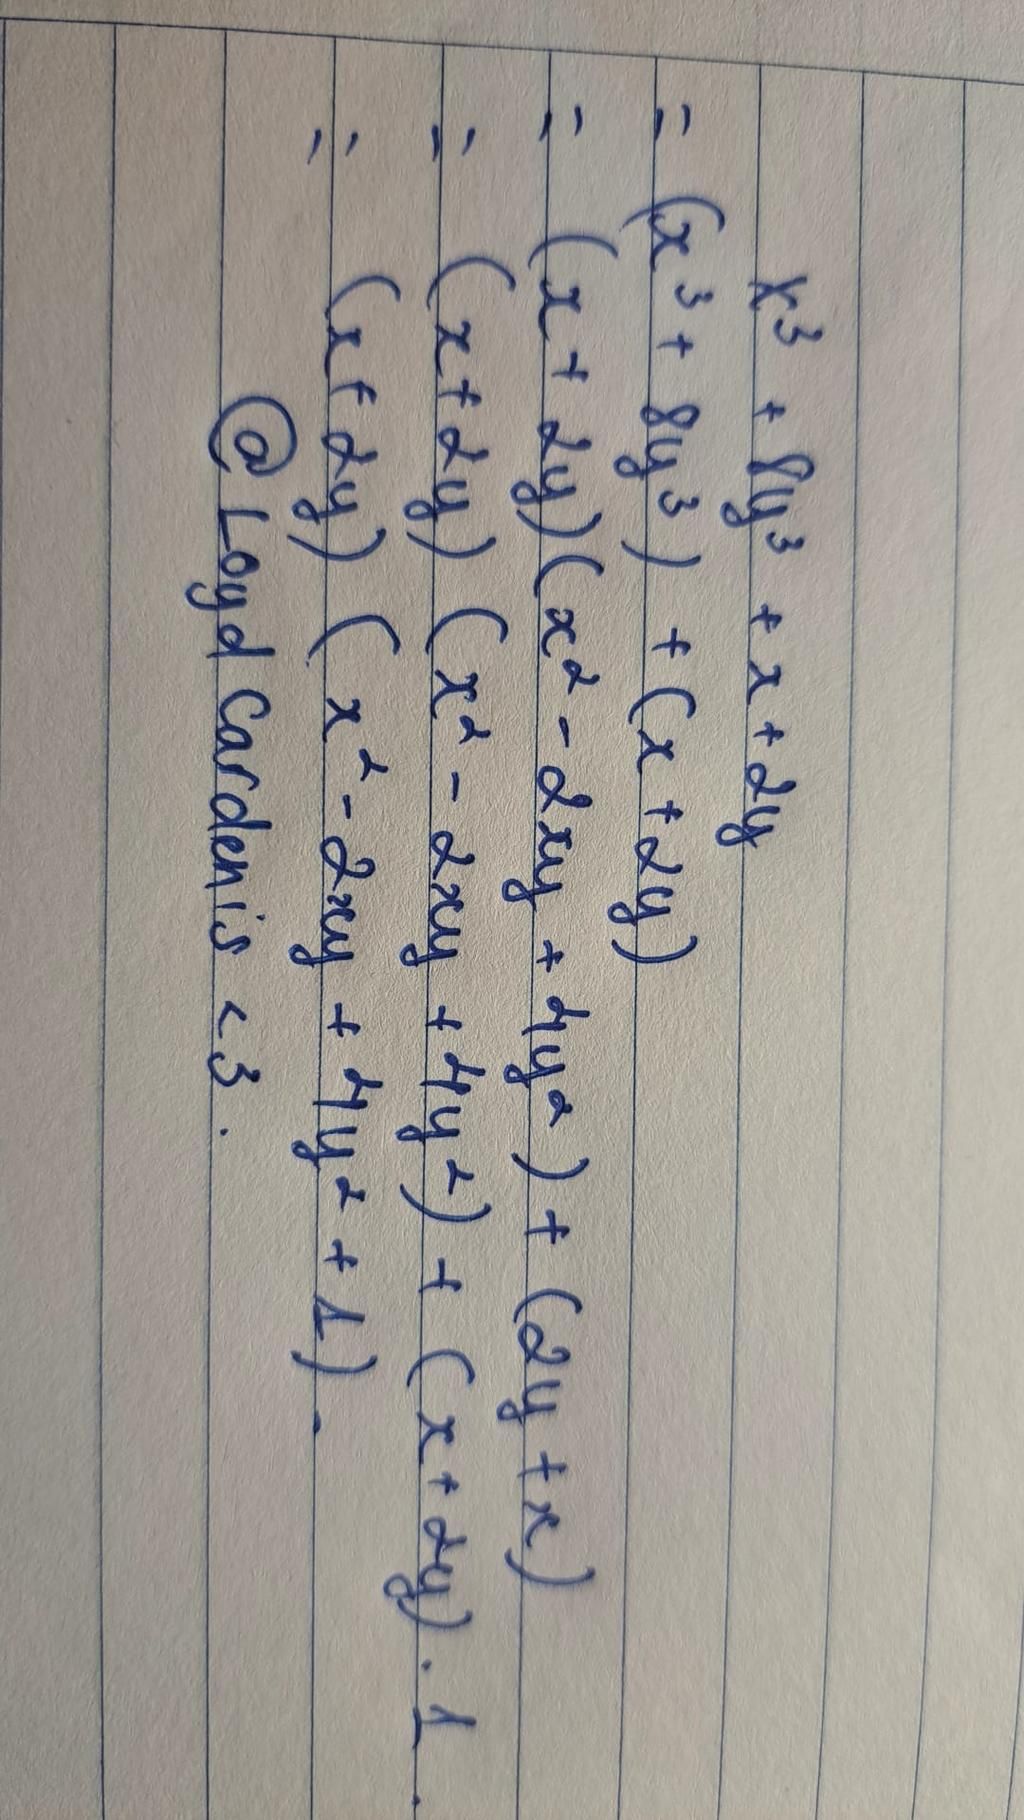 x³ + 8y³ + x + 2y
= (x³ + 8y³) + (x + 2y)
= (x + 2y)(x² - 2xy + 4y²) + (2y + x)
= (x + 2y) (x² - 2xy + 4y²) + (x + 2y) . 1
= (x + 2y) (x² - 2xy + 4y² + 1) .
@ Loyd Cardenis <3 .